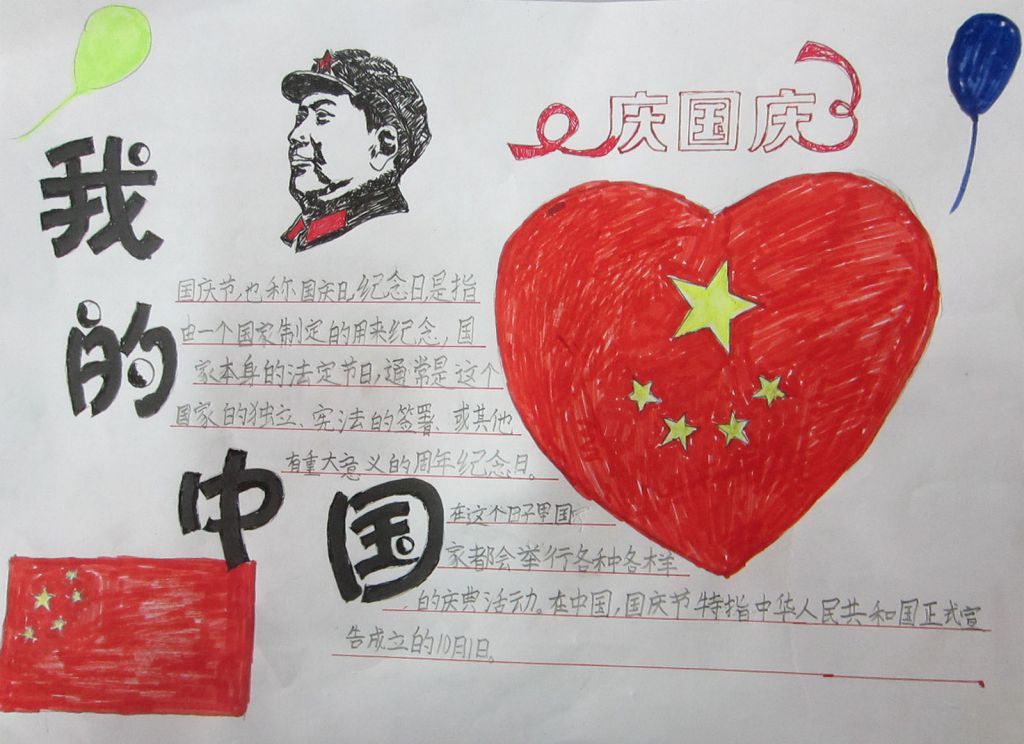 庆国庆
我的中国
国庆节,也称国庆日,纪念日是指
由一个国家制定的用来纪念,国
家本身的法定节日,通常是这个
国家的独立、宪法的签署、或其他
有重大意义的周年纪念日。
在这个日子里国
家都会举行各种各样
的庆典活动。在中国,国庆节特指中华人民共和国正式宣
告成立的10月1日。